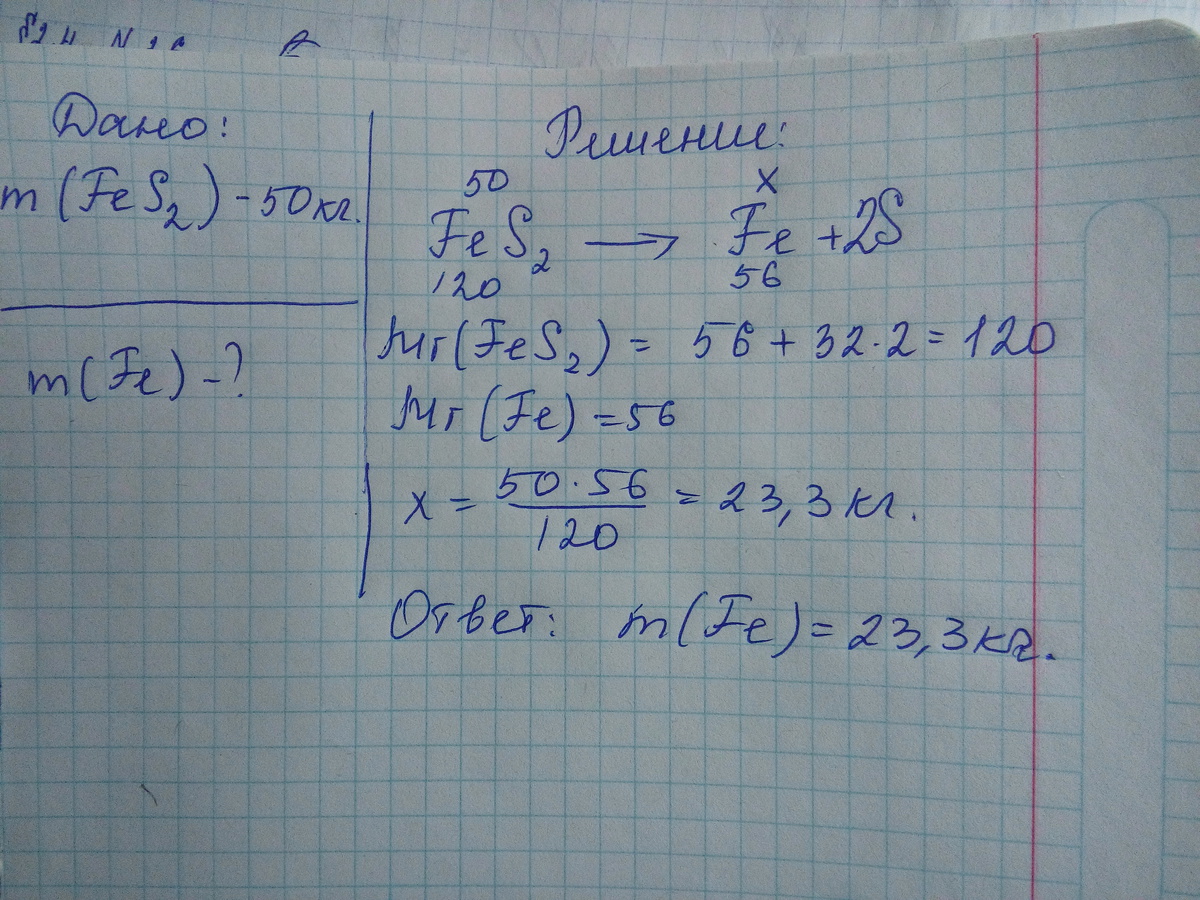 Дано:
m (FeS₂) - 50 кг.
m (Fe) - ?
Решение:
50 x
FeS₂ → Fe + 2S
120 56
Mr (FeS₂) = 56 + 32 · 2 = 120
Mr (Fe) = 56
x = 50 · 56 / 120 = 23,3 кг.
Ответ: m (Fe) = 23,3 кг.